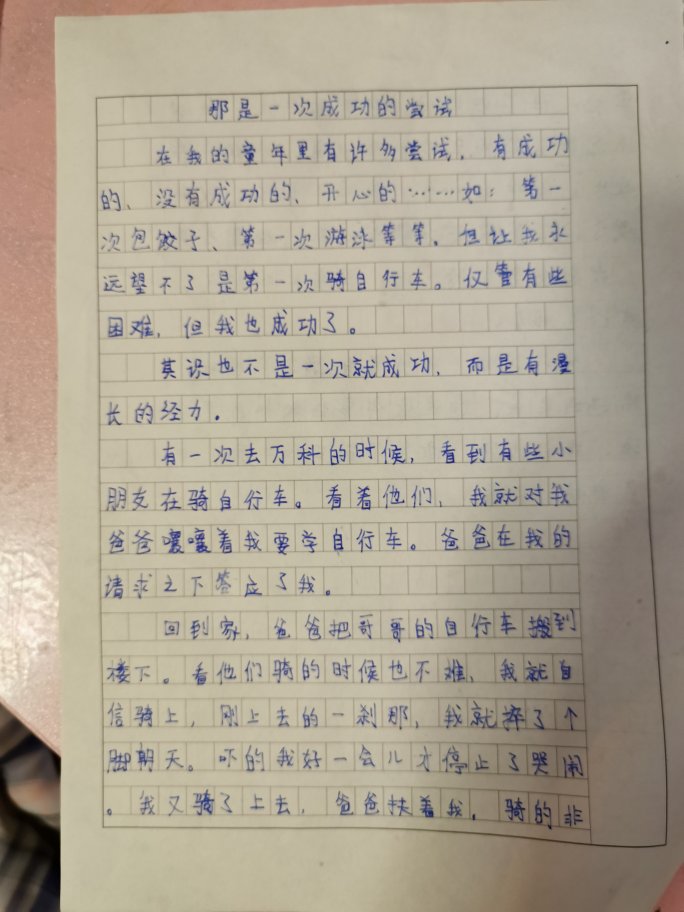 那是一次成功的尝试
在我的童年里有许多尝试，有成功
的、没有成功的、开心的……如：第一
次包饺子、第一次游泳等等。但让我永
远望不了是第一次骑自行车。仅管有些
困难，但我也成功了。
其识也不是一次就成功，而是有漫
长的经力。
有一次去万科的时候，看到有些小
朋友在骑自行车。看着他们，我就对我
爸爸嚷嚷着我要学自行车。爸爸在我的
请求之下答应了我。
回到家，爸爸把哥哥的自行车搬到
楼下。看他们骑的时候也不难，我就自
信骑上，刚上去的一刹那，我就摔了个
脚朝天。吓的我好一会儿才停止了哭闹
。我又骑了上去，爸爸扶着我。骑的非